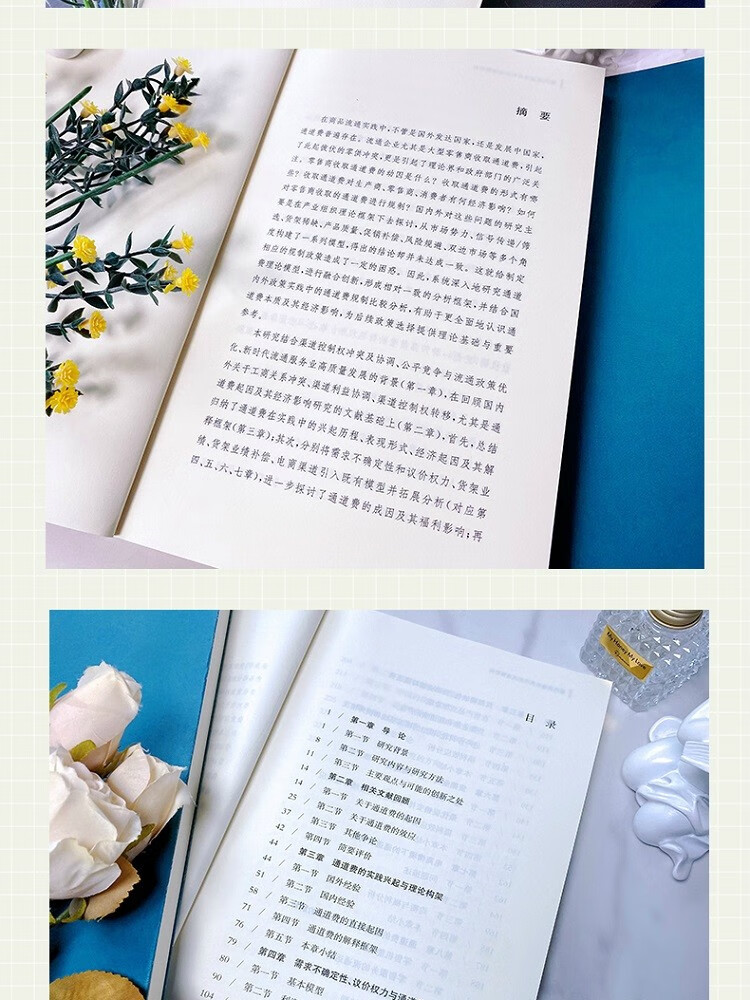 摘 要
在商品流通实践中,不管是国外发达国家,还是发展中国家,
通道费普遍存在。流通企业尤其是大型零售商收取通道费,引起
了此起彼伏的零供冲突,更是引起了理论界和政府部门的广泛关
注。零售商收取通道费的动因是什么?收取通道费的形式有哪
些?收取通道费对生产商、零售商、消费者有何经济影响?如何
对零售商收取的通道费进行规制?国内外对这些问题的研究主
要是在产业组织理论框架下去探讨,从市场势力、信号传递/筛
选、货架稀缺、产品质量、促销补偿、风险规避、双边市场等多个角
度构建了一系列模型,得出的结论却并未达成一致。这就给制定
相应的规制政策造成了一定的困惑。因此,系统深入地研究通道
费理论模型,进行融合创新,形成相对一致的分析框架,并结合国
内外政策实践中的通道费规制比较分析,有助于更全面地认识通
道费本质及其经济影响,为后续政策选择提供理论基础与重要
参考。
本研究结合渠道控制权冲突及协调、公平竞争与流通政策优
化、新时代流通服务业高质量发展的背景(第一章),在回顾国内
外关于工商关系冲突、渠道利益协调、渠道控制权转移,尤其是通
道费起因及其经济影响研究的文献基础上(第二章),首先,总结
归纳了通道费在实践中的兴起历程、表现形式、经济起因及其解
释框架(第三章);其次,分别将需求不确定性和议价权力、货架业
绩、货架业绩补偿、电商渠道引入既有模型并拓展分析(对应第
四、五、六、七章),进一步探讨了通道费的成因及其福利影响;再
My Honey My Love
目 录
1 / 第一章 导 论
1 / 第一节 研究背景
8 / 第二节 研究内容与研究方法
11 / 第三节 主要观点与可能的创新之处
14 / 第二章 相关文献回顾
14 / 第一节 关于通道费的起因
25 / 第二节 关于通道费的效应
37 / 第三节 其他争论
42 / 第四节 简要评价
44 / 第三章 通道费的实践兴起与理论构架
44 / 第一节 国外经验
51 / 第二节 国内经验
58 / 第三节 通道费的直接起因
71 / 第四节 通道费的解释框架
76 / 第五节 本章小结
79 / 第四章 需求不确定性、议价权力与通道
80 / 第一节 基本模型
90 / 第二节
104